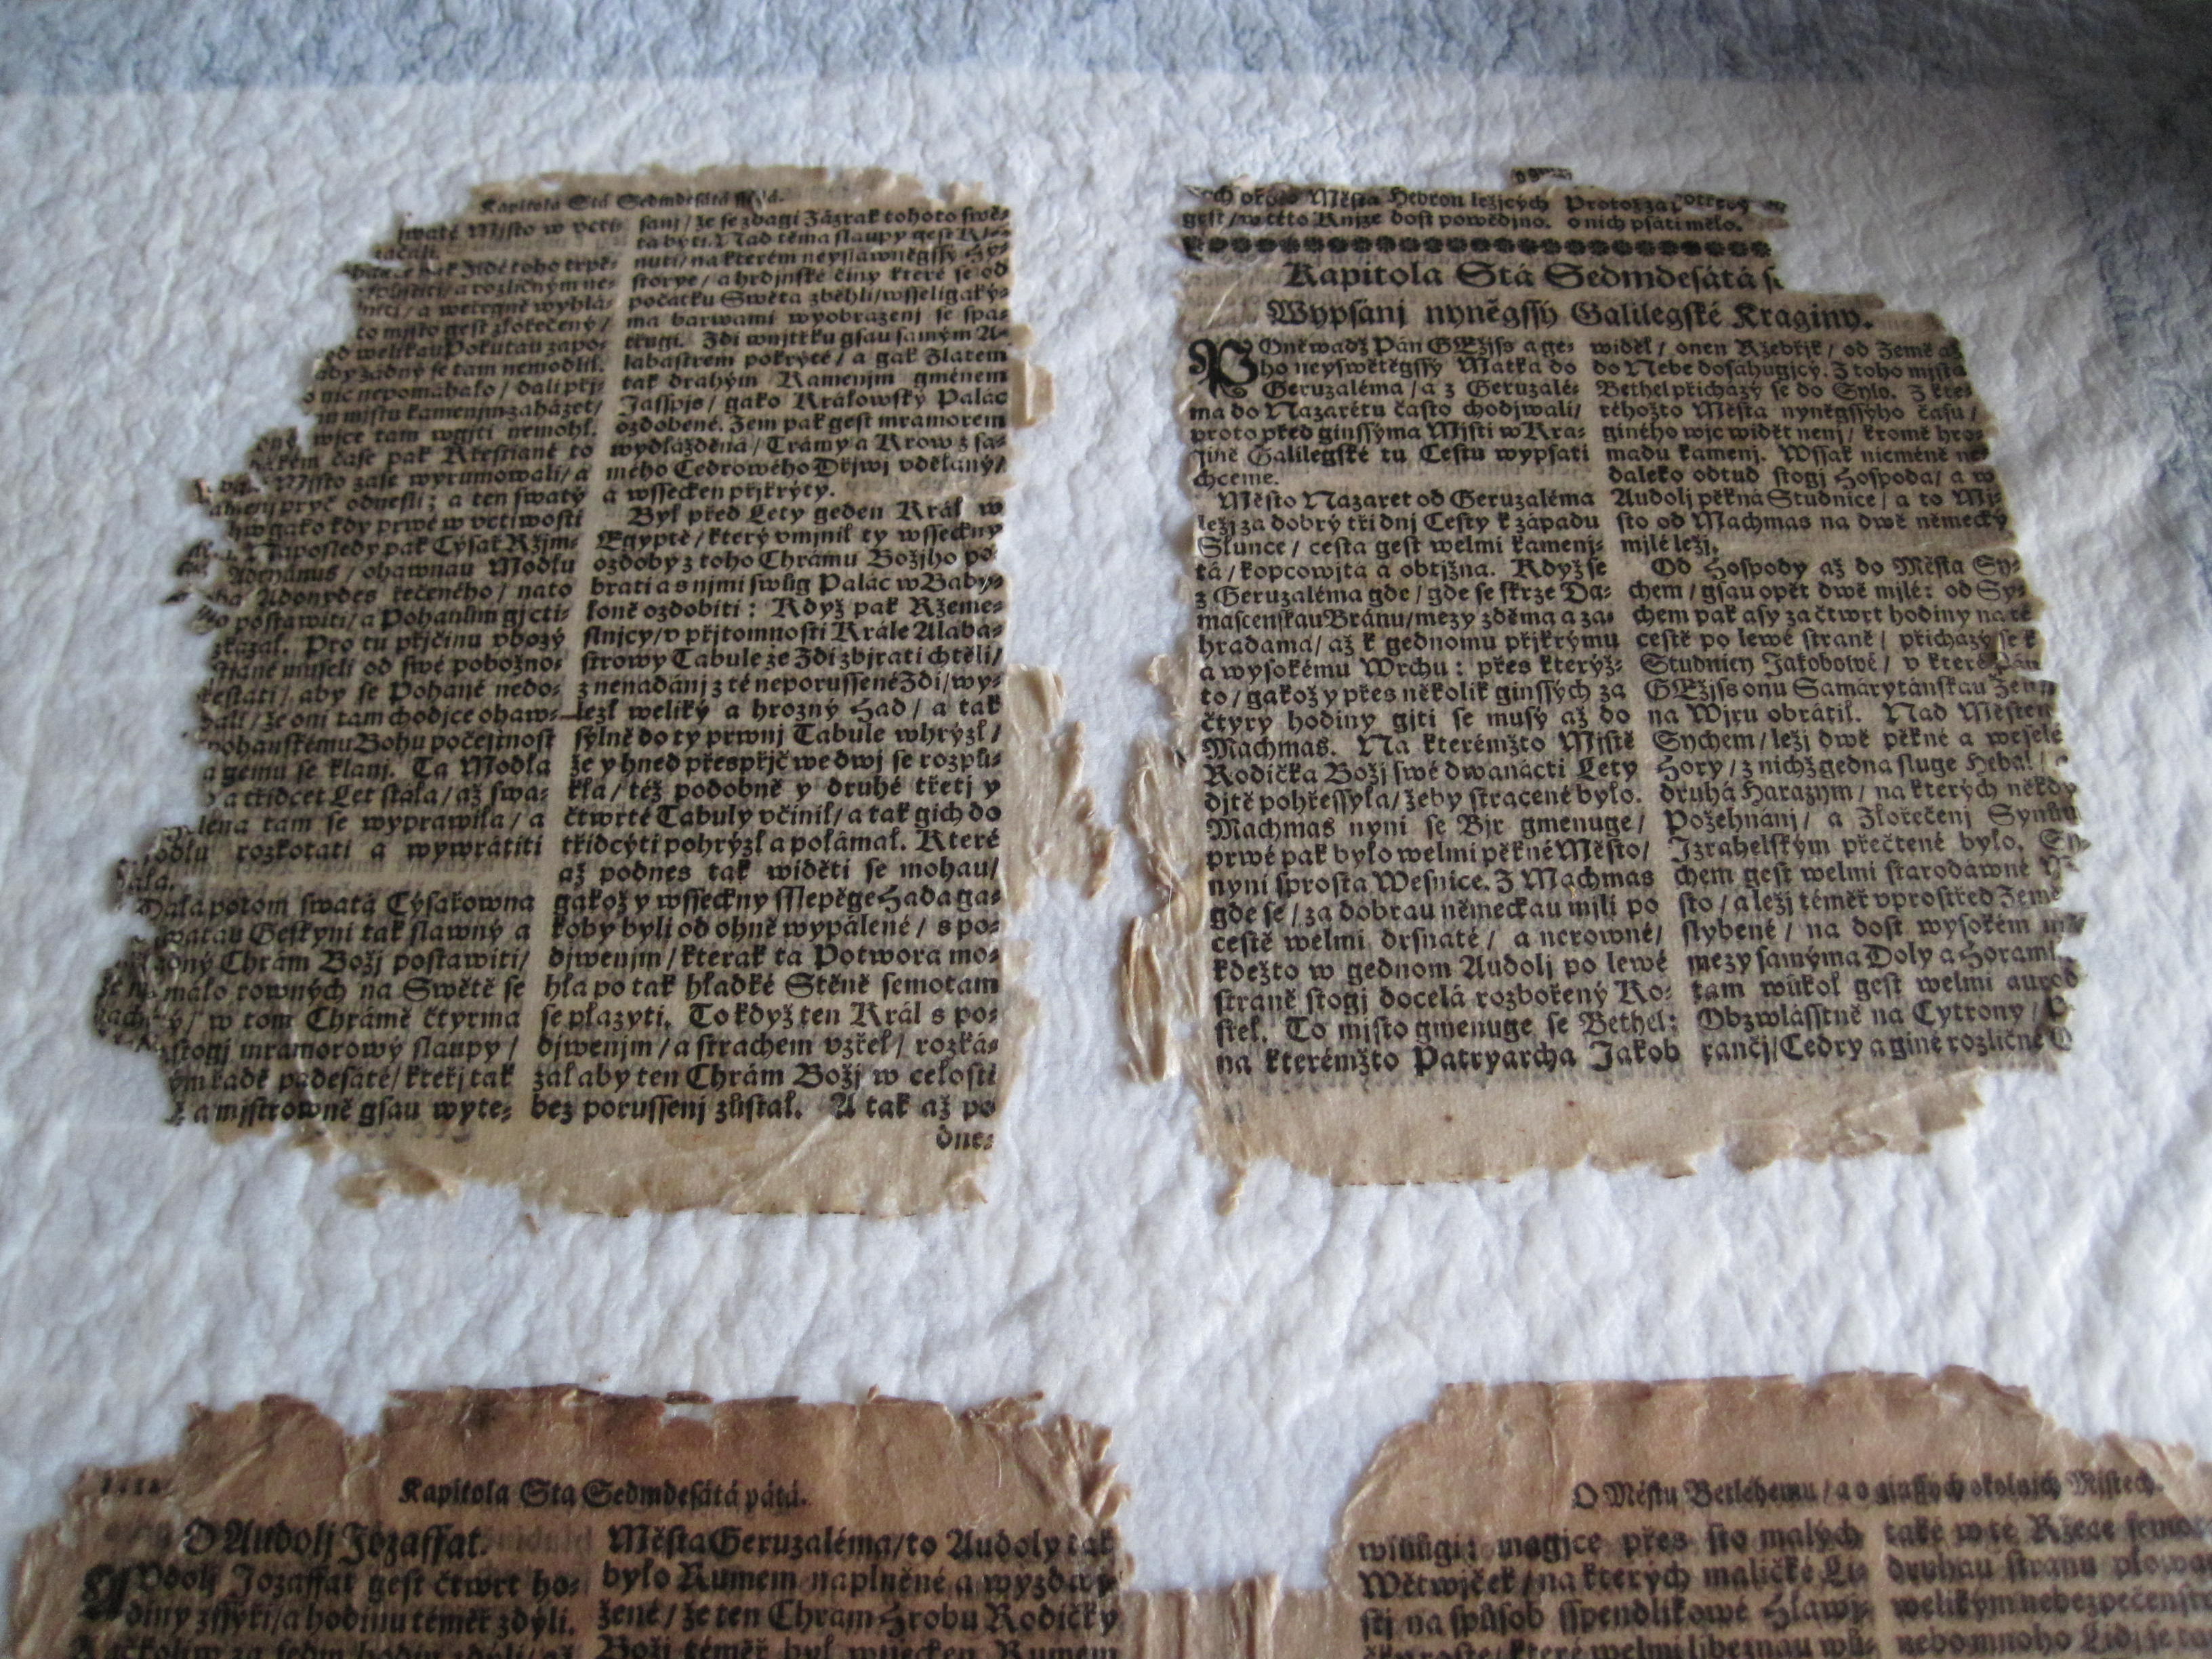 Kapitola Stá Sedmdesátá
swaté Mjsto w vcti-
Židé toho trpě-
a rozličným ne-
a wetrgně wyhlá-
to mjsto gest zlořečený /
od welikau Pokutau zapo-
aby žádný se tam nemodlil.
o nic nepomáhalo / dali přj-
mjstu kamenjm zaházet /
wjce tam wgjti nemohl.
čase pak Křestiané to
Mjsto zase wyrumowali / a
pryč odnesli; a ten swatý
gako kdy prwé w vctiwosti
Naposledy pak Cýsař Ržjm-
Adryánus / ohawnau Modlu
Adonydes řečeného / nato
postawiti / a Pohanům gj cti-
zkázal. Pro tu přjčinu vbozý
museli od swé pobožno-
přestati / aby se Pohané nedo-
že oni tam chodjce ohaw-
pohanskému Bohu počestnost
a gemu se klanj. Ta Modla
a třidcet Let stála / až swa-
tam se wyprawila / a
rozkotati a wywrátiti
Dala potom swatá Cýsařowna
Geskyni tak slawný a
Chrám Božj postawiti /
málo rowných na Swětě se
w tom Chrámě čtyrma
stogj mramorowý slaupy /
řadě padesáte / kteřj tak
a mjstrowně gsau wyte-
sanj / že se zdagj Zázrak tohoto swě-
ta býti. Nad těma slaupy gest
nutj / na kterém neyslawněgssý Hy-
storye / a hrdjnské činy které se od
počátku Swěta zběhli / wsselikaký-
ma barwami wyobrazenj se spa-
třugj. Zdi wnjtřku gsau samým A-
labastrem pokryté / a gak Zlatem
tak drahým Kamenjm gménem
Jasspjs / gako Králowský Palác
ozdobené. Zem pak gest mramorem
wydlážděná / Trámy a Krow z sa-
mého Cedrowého Dřjwj vdělaný /
a wssecken přikrýty.
Byl před Lety geden Král w
Egyptě / který vmjnil ty wssecky
ozdoby z toho Chrámu Božjho po-
brati a s njmi swůg Palác w Baby-
loně ozdobiti: Když pak Ržeme-
slnjcy / v přjtomnosti Krále Alaba-
strowy Tabule ze Zdi zbjrati chtěli /
z nenadánj z té neporussené Zdi / wy-
lezl weliký a hrozný Had / a tak
sylně do ty prwnj Tabule whrýzl /
že y hned přespřjč we dwj se rozpu-
kla / též podobně y druhé třetj y
čtwrté Tabuly včinil / a tak gich do
třidcýti pohrýzl a polámal. Které
až podnes tak widěti se mohau /
gakož y wssecky sslepěge Hada ga-
koby byli od ohně wypálené / s po-
djwenjm / kterak ta Potwora mo-
hla po tak hladké Stěně semotam
se plazyti. To když ten Král s po-
djwenjm / a strachem vzřel / rozká-
zal aby ten Chrám Božj w celosti
bez porussenj zůstal. A tak až po
dne-
okolo Města Hebron ležjcých
gest / w této Knjze dost powědjno.
Protož za
o nich psáti mělo.
Kapitola Stá Sedmdesátá
Wypsánj nyněgssý Galilegské Kraginy.
POněwadž Pán GEžjss a ge-
ho neyswětěgssý Matka do
Geruzaléma / a z Geruzalé-
ma do Nazarétu často chodjwali /
proto před ginssýma Mjsti w Kra-
jině Galilegské tu Cestu wypsati
chceme.
Město Nazaret od Geruzaléma
ležj za dobrý tři dnj Cesty k západu
Slunce / cesta gest welmi kamenj-
tá / kopcowjtá a obtjžná. Když se
z Geruzaléma gde / gde se skrze Da-
mascenskau Bránu / mezy zděma a za-
hradama / až k gednomu přjkrýmu
a wysokému Wrchu: přes kterýž-
to / gakož y přes několik ginssých za
čtyry hodiny gjti se musý až do
Machmas. Na kterémžto Mjstě
Rodička Božj swé dwanácti Lety
djtě pohřessyla / žeby stracené bylo.
Machmas nynj se Bjr gmenuge /
prwé pak bylo welmi pěkné Město /
nynj sprostá Wesnice. Z Machmas
gde se / za dobrau německau mjli po
cestě welmi drsnaté / a nerowné /
kdežto w gednom Audolj po lewé
straně stogj docela rozbořený Ko-
stel. To mjsto gmenuge se Bethel:
na kterémžto Patryarcha Jakob
widěl / onen Ržebřjk / od Země až
do Nebe dosahugjcý. Z toho mjsta
Bethel přicházý se do Sylo. Z kte-
réhožto Města nyněgssýho času /
giného wjc widět nenj / kromě hro-
madu kamenj. Wssak nicméně ne
daleko odtud stogj Hospoda / a w
Audolj pěkná Studnice / a to Mj-
sto od Machmas na dwě německý
mjle ležj.
Od Hospody až do Města Sy-
chem / gsau opět dwě mjle: od Sy-
chem pak asy za čtwrt hodiny na té
cestě po lewé straně / přicházý se k
Studnicy Jakobowé / v které Pán
GEžjss onu Samárytánskau Ženu
na Wjru obrátil. Nad Městem
Sychem / ležj dwě pěkné a weselé
Hory / z nichž gedna sluge Hebal /
druhá Harazym / na kterých někdy
Požehnánj / a Zlořečenj Synům
Izrahelským přečtené bylo. Sy-
chem gest welmi starodáwné
sto / a ležj téměř vprostřed Země
slybené / na dost wysokém
mezy samýma Doly a Horamj.
tam wůkol gest welmi aurod
Obzwlásstně na Cytrony /
rančj / Cedry a giné rozličné
Kapitola Stá Sedmdesátá pátá.
O Audolj Jozaffat.
AUdolj Jozaffat gest čtwrt ho-
diny zssýři / a hodinu téměř zdýli.
Města Geruzaléma / to Audoly tak
bylo Rumem naplněné a wyzdwy-
žené / že ten Chrám Hrobu Rodičky
Božj téměř byl wssecken Rumem
O Městu Betlémemu / a o ginssých okolnich Mjstech.
winugj: magjce přes sto malých
Wětwjček / na kterých maličké Li-
stj na způsob sspendlikowé Hlawj-
čky roste / které welmi libeznau wů-
také w té Ržece
druhau stranu
welikým nebezpečenst
nebo mnoho Lidj se